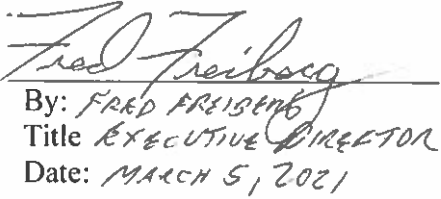 Fred Freiberg
By: FRED FREIBERG
Title EXECUTIVE DIRECTOR
Date: MARCH 5, 2021